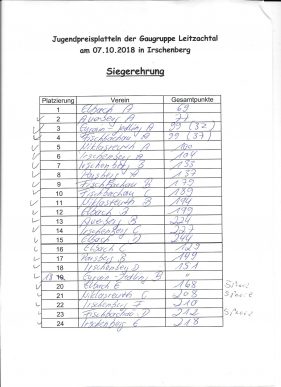 Jugendpreisplatteln der Gaugruppe Leitzachtal
am 07.10.2018 in Irschenberg
Siegerehrung
Platzierung Verein Gesamtpunkte
1 Elbach A 69
2 Auerberg A 77
3 Eyrain - Jedling A 99 (32)
4 Fischbachau A 99 (37)
5 Niklasreuth A 100
6 Irschenberg A 104
7 Irschenberg B 135
8 Parsberg A 137
9 Fischbachau B 139
10 Fischbachau C 189
11 Niklasreuth B 194
12 Elbach B 199
13 Auerberg B 224
14 Irschenberg C 227
15 Elbach D 244
16 Elbach C 129
17 Parsberg B 149
18 Irschenberg D 151
18 19 Jedling B "
20 Elbach E 168
21 Niklasreuth C 208
22 Irschenberg F 210
23 Fischbachau D 212
24 Irschenberg E 218